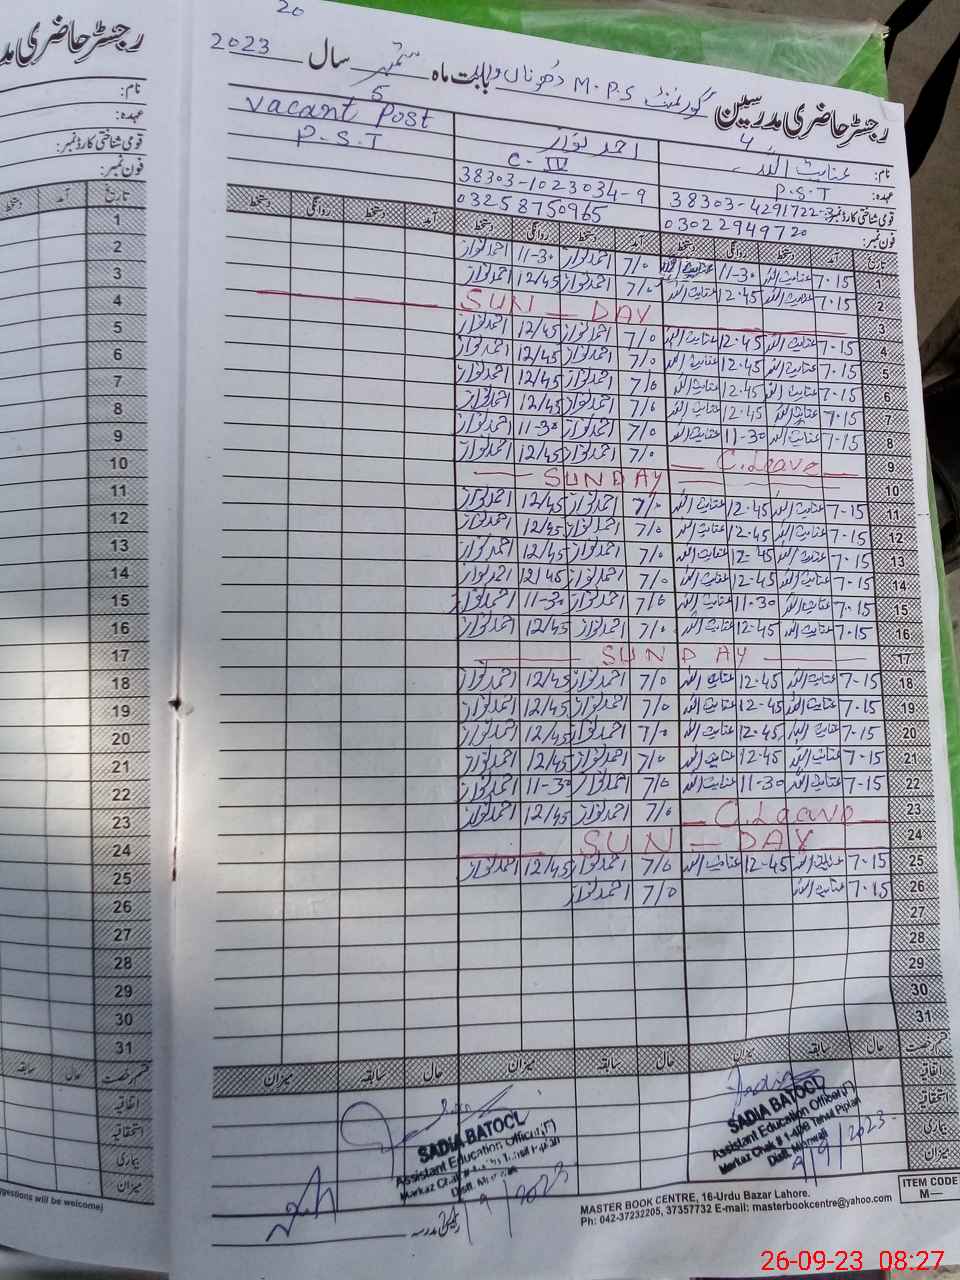 رجسٹر حاضری مدرسین گورنمنٹ M.P.S بابت ماہ ستمبر سال 2023
20
نام: عنایت اللہ
احمد نواز
Vacant Post
عہدہ: P.S.T
C-IV
P.S.T
قومی شناختی کارڈ نمبر: 38303-4291722-3
38303-1023034-9
فون نمبر: 03022949720
03258750965
تاریخ آمد دستخط روانگی دستخط آمد دستخط روانگی دستخط آمد دستخط روانگی دستخط
1 7-15 عنایت اللہ 11-30 عنایت اللہ 7/0 احمد نواز 11-30 احمد نواز
2 7-15 عنایت اللہ 12-45 عنایت اللہ 7/0 احمد نواز 12/45 احمد نواز
3 SUN — DAY
4 7-15 عنایت اللہ 12-45 عنایت اللہ 7/0 احمد نواز 12/45 احمد نواز
5 7-15 عنایت اللہ 12-45 عنایت اللہ 7/0 احمد نواز 12/45 احمد نواز
6 7-15 عنایت اللہ 12-45 عنایت اللہ 7/0 احمد نواز 12/45 احمد نواز
7 7-15 عنایت اللہ 12-45 عنایت اللہ 7/0 احمد نواز 12/45 احمد نواز
8 7-15 عنایت اللہ 11-30 عنایت اللہ 7/0 احمد نواز 11-30 احمد نواز
9 C.Leave 7/0 احمد نواز 12/45 احمد نواز
10 SUNDAY
11 7-15 عنایت اللہ 12-45 عنایت اللہ 7/0 احمد نواز 12/45 احمد نواز
12 7-15 عنایت اللہ 12-45 عنایت اللہ 7/0 احمد نواز 12/45 احمد نواز
13 7-15 عنایت اللہ 12-45 عنایت اللہ 7/0 احمد نواز 12/45 احمد نواز
14 7-15 عنایت اللہ 12-45 عنایت اللہ 7/0 احمد نواز 12/45 احمد نواز
15 7-15 عنایت اللہ 11-30 عنایت اللہ 7/0 احمد نواز 11-30 احمد نواز
16 7-15 عنایت اللہ 12-45 عنایت اللہ 7/0 احمد نواز 12/45 احمد نواز
17 SUNDAY
18 7-15 عنایت اللہ 12-45 عنایت اللہ 7/0 احمد نواز 12/45 احمد نواز
19 7-15 عنایت اللہ 12-45 عنایت اللہ 7/0 احمد نواز 12/45 احمد نواز
20 7-15 عنایت اللہ 12-45 عنایت اللہ 7/0 احمد نواز 12/45 احمد نواز
21 7-15 عنایت اللہ 12-45 عنایت اللہ 7/0 احمد نواز 12/45 احمد نواز
22 7-15 عنایت اللہ 11-30 عنایت اللہ 7/0 احمد نواز 11-30 احمد نواز
23 C.Leave 7/0 احمد نواز 12/45 احمد نواز
24 SUN — DAY
25 7-15 عنایت اللہ 12-45 عنایت اللہ 7/0 احمد نواز 12/45 احمد نواز
26 7-15 عنایت اللہ 7/0 احمد نواز
27
28
29
30
31
قسم رخصت حال سابقہ میزان حال سابقہ میزان حال سابقہ میزان
اتفاقیہ
استحقاقیہ
بیماری
میزان
SADIA BATOOL
Assistant Education Officer (F)
Distt. Mianwali
9/9/2023
SADIA BATOOL
Assistant Education Officer (F)
رئیس مدرسہ
MASTER BOOK CENTRE, 16-Urdu Bazar Lahore.
Ph: 042-37232205, 37357732 E-mail: masterbookcentre@yahoo.com
ITEM CODE
M—
رجسٹر حاضری
نام:
عہدہ:
قومی شناختی کارڈ نمبر:
فون نمبر:
تاریخ آمد دستخط
1
2
3
4
5
6
7
8
9
10
11
12
13
14
15
16
17
18
19
20
21
22
23
24
25
26
27
28
29
30
31
قسم رخصت حال سابقہ
اتفاقیہ
استحقاقیہ
بیماری
میزان
will be welcome)
26-09-23 08:27